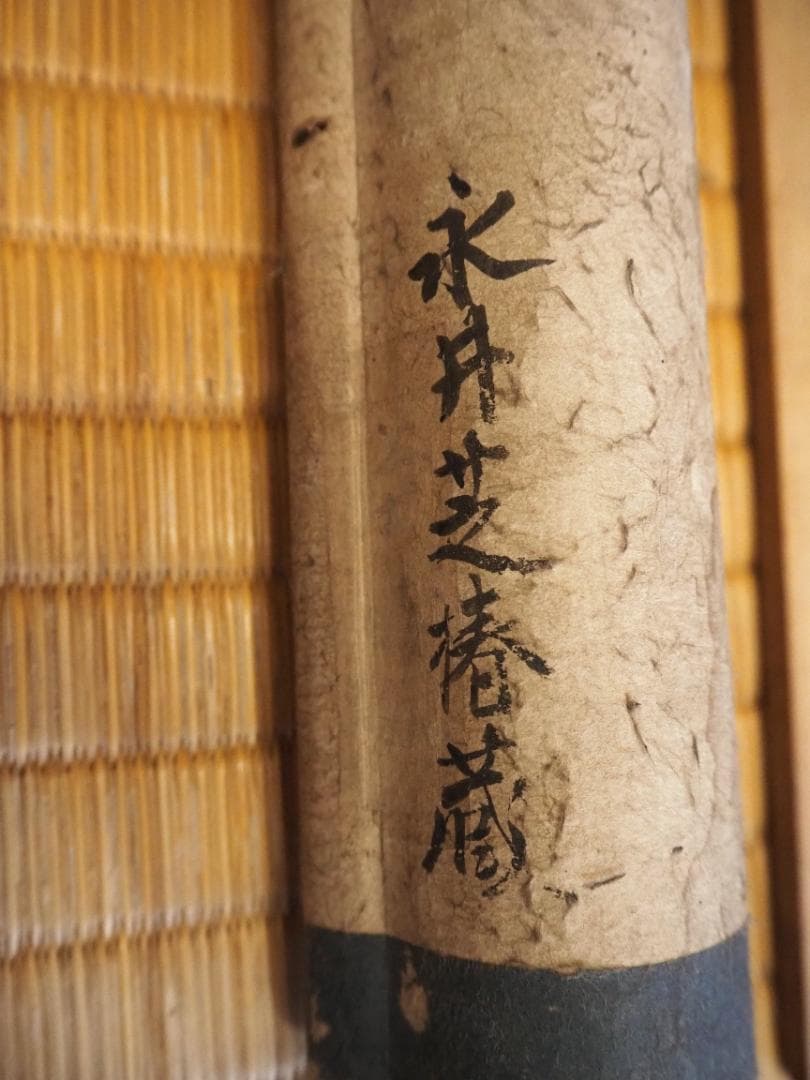 永井芝椿蔵